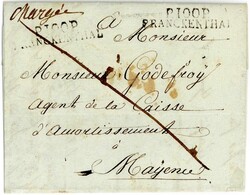 Chargé
P100P
FRANCKENTHAL
P100P
FRANCKENTHAL
à
Monsieur
Monsieur Godefroy
Agent de la Caisse
d'Amortissement
à
Mayence